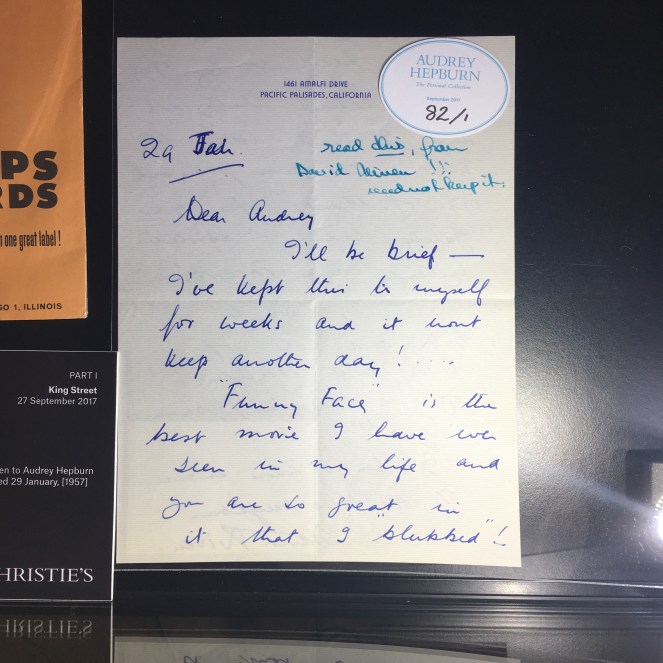 PS
RDS
one great label!
GO 1, ILLINOIS
1461 AMALFI DRIVE
PACIFIC PALISADES, CALIFORNIA
AUDREY
HEPBURN
The Personal Collection
September 2017
82/1
29 Jan.
read this, from
David Niven !!!
need not keep it.
Dear Audrey
I'll be brief —
I've kept this to myself
for weeks and it wont
keep another day! ....
"Funny Face" is the
best movie I have ever
seen in my life and
you are so great in
it that I "blubbed"!
PART I
King Street
27 September 2017
en to Audrey Hepburn
ed 29 January, [1957]
HRISTIE'S